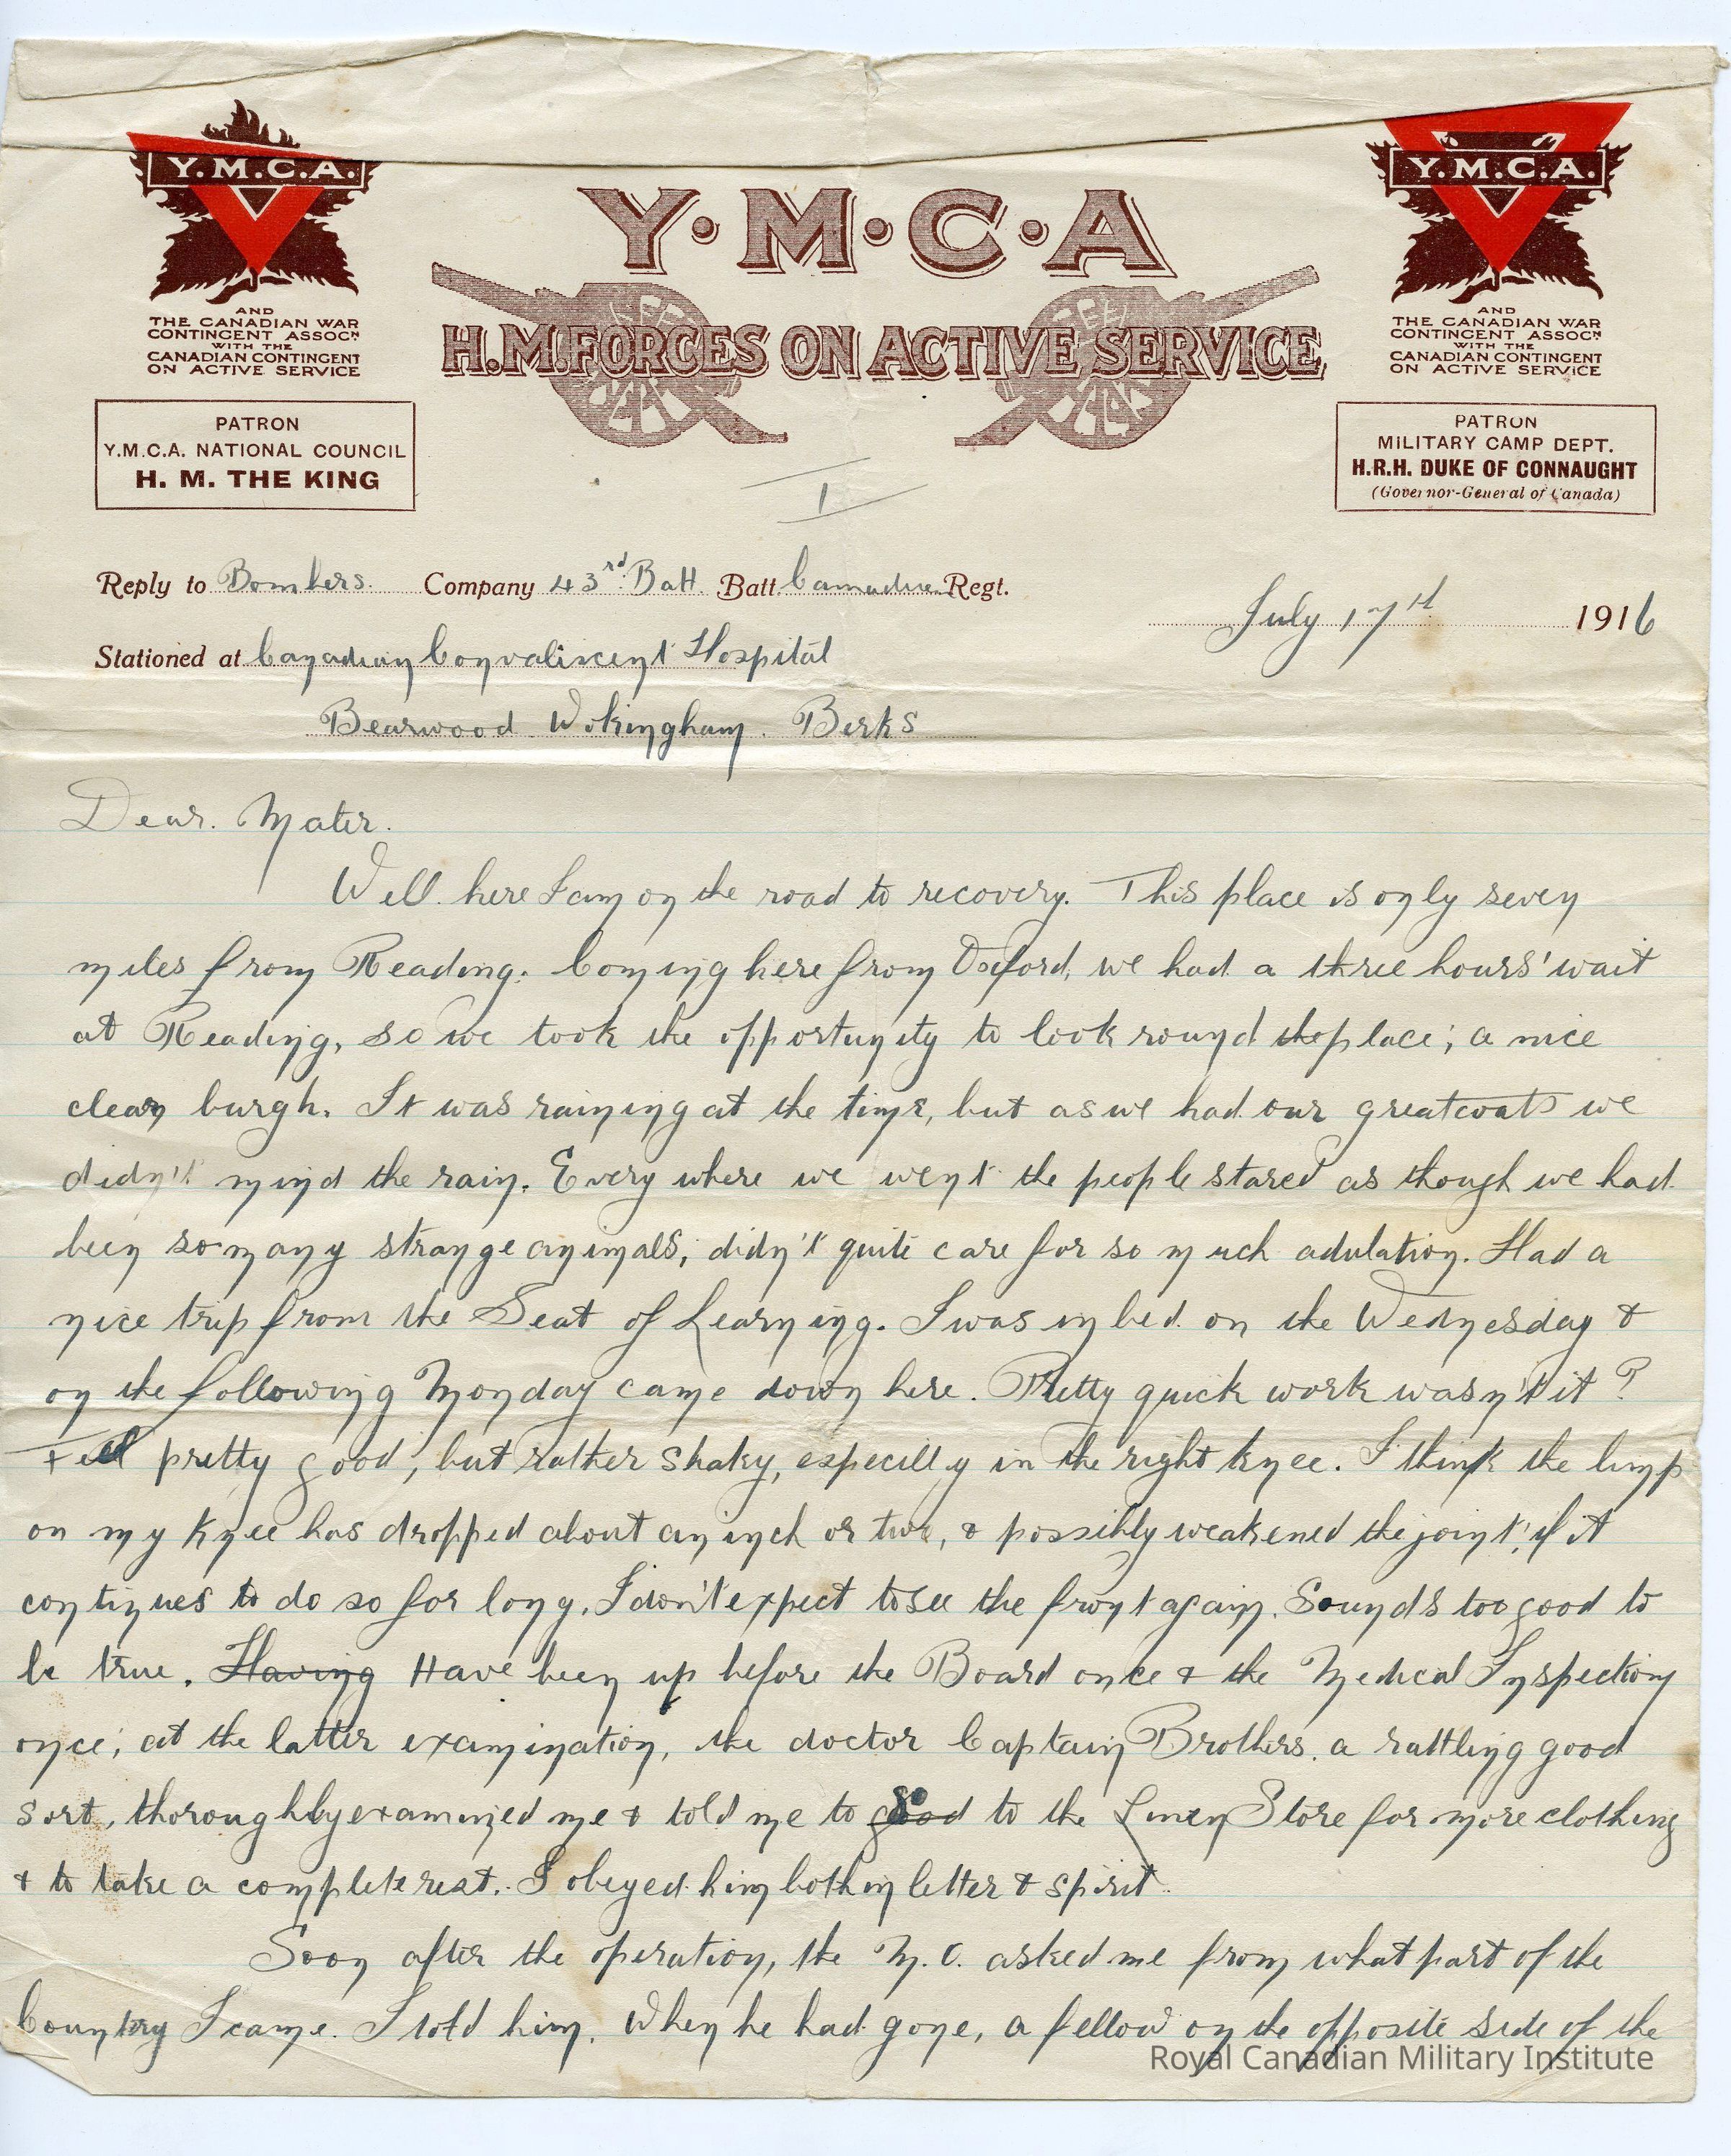 Y.M.C.A.
AND
THE CANADIAN WAR
CONTINGENT ASSOCN
WITH THE
CANADIAN CONTINGENT
ON ACTIVE SERVICE
PATRON
Y.M.C.A. NATIONAL COUNCIL
H. M. THE KING
Y·M·C·A
H.M. FORCES ON ACTIVE SERVICE
Y.M.C.A.
AND
THE CANADIAN WAR
CONTINGENT ASSOCN
WITH THE
CANADIAN CONTINGENT
ON ACTIVE SERVICE
PATRON
MILITARY CAMP DEPT.
H.R.H. DUKE OF CONNAUGHT
(Governor-General of Canada)
I
Reply to Bombers. Company 43rd Batt. Batt Canadian Regt.
July 17th 1916
Stationed at Canadian Convaliscent Hospital
Bearwood Wokingham. Berks
Dear. Mater.
Well. here I am on the road to recovery. This place is only seven
miles from Reading. Coming here from Oxford, we had a three hours' wait
at Reading, so we took the opportunity to look round the place; a nice
clean burgh. It was raining at the time, but as we had our greatcoats we
didn't mind the rain. Every where we went the people stared as though we had
been so many strange animals, didn't quite care for so much adulation. Had a
nice trip from the Seat of Learning. I was in bed on the Wednesday &
on the following Monday came down here. Pretty quick work wasn't it?
Feel pretty good, but rather shaky, especilly in the right knee. I think the lump
on my knee has dropped about an inch or two, & possibly weakened the joint; if it
continues to do so for long, I don't expect to see the front again. Sounds too good to
be true. Having Have been up before the Board once & the Medical Inspection
once; at the latter examination, the doctor Captain Brothers, a rattling good
sort, thoroughly examined me & told me to go to the Linen Store for more clothing
& to take a complete rest. I obeyed him both in letter & spirit.
Soon after the operation, the M.O. asked me from what part of the
Country I came. I told him. When he had gone, a fellow on the opposite side of the
Royal Canadian Military Institute